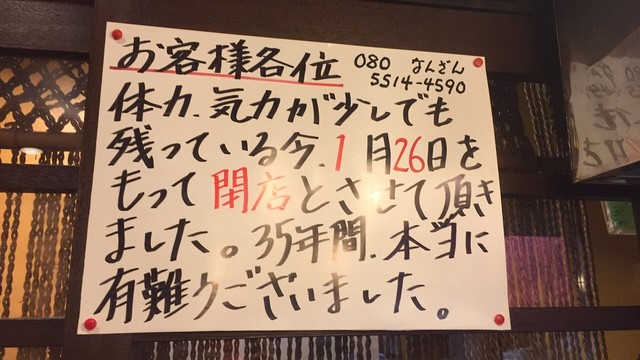 お客様各位 080 なんざん
5514-4590
体力、気力が少しでも
残っている今、1月26日を
もって閉店とさせて頂き
ました。35年間、本当に
有難うございました。